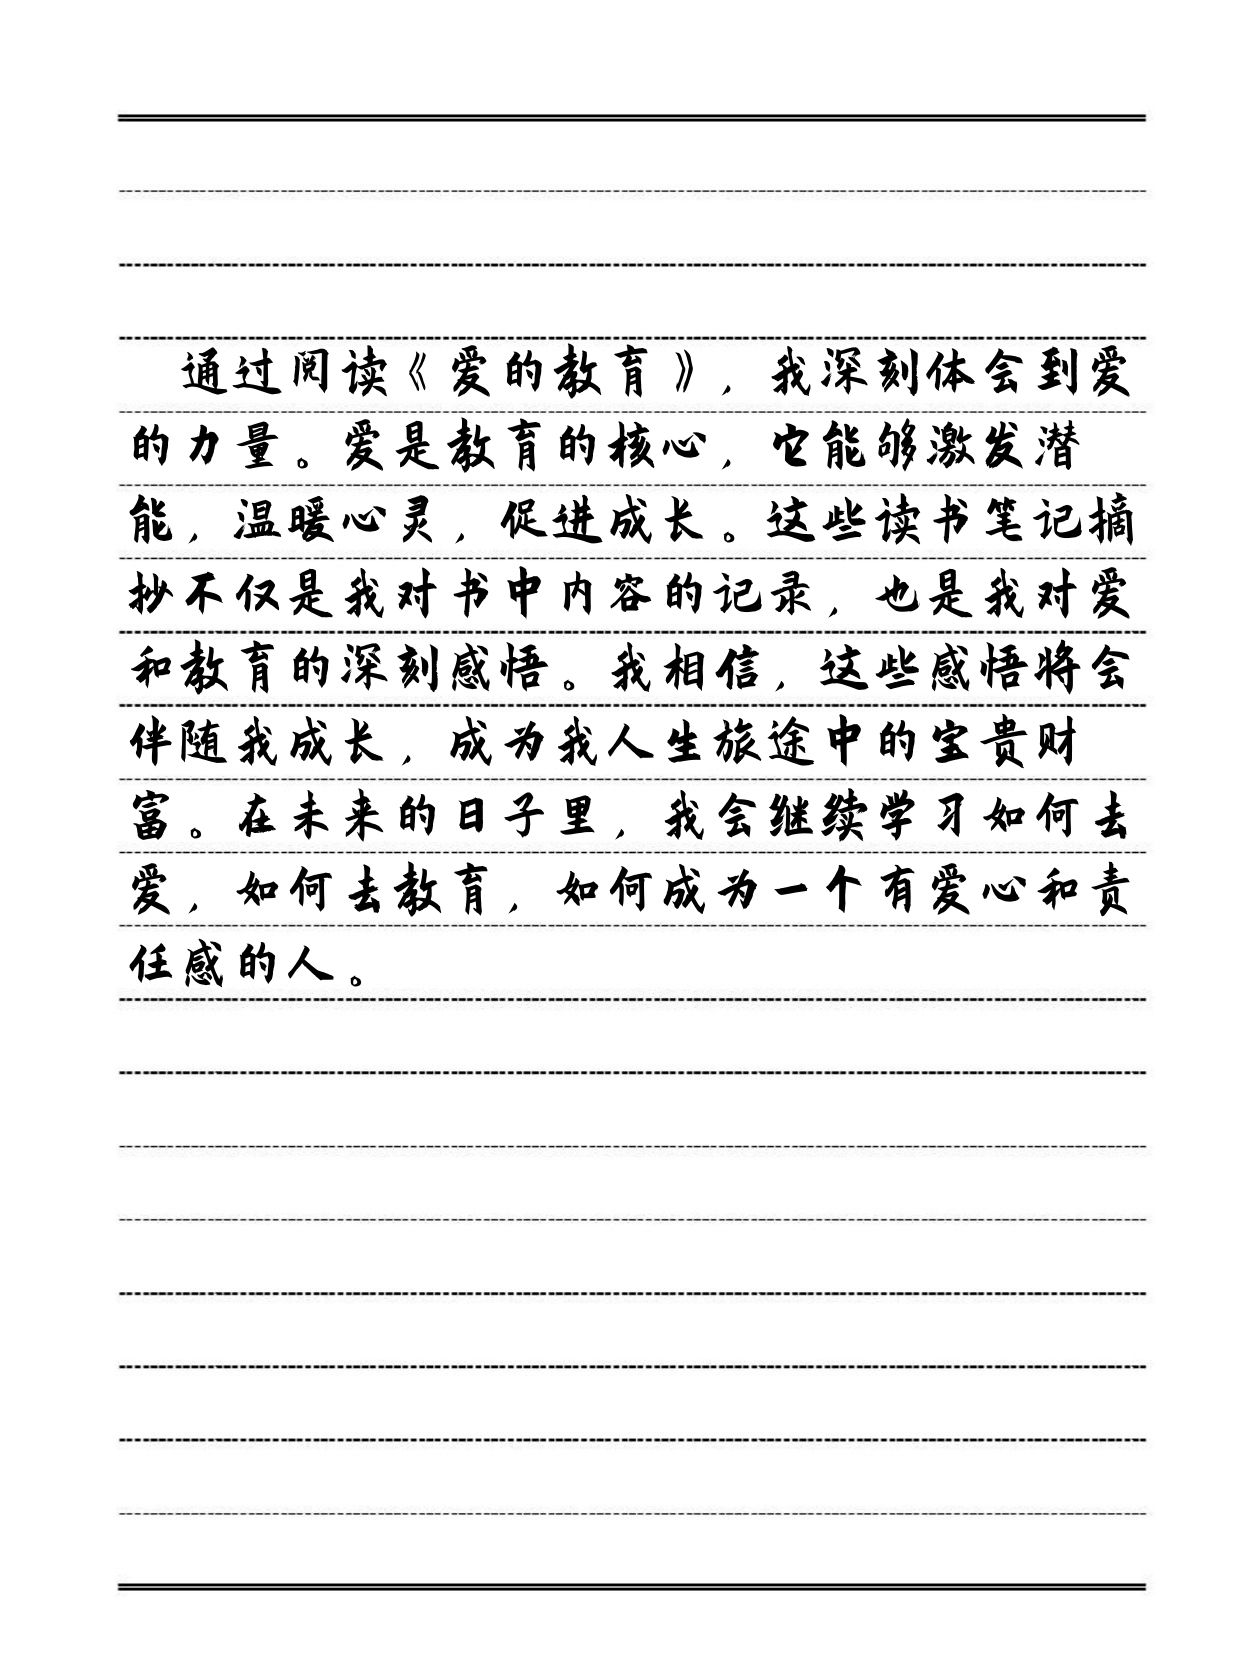 通过阅读《爱的教育》，我深刻体会到爱
的力量。爱是教育的核心，它能够激发潜
能，温暖心灵，促进成长。这些读书笔记摘
抄不仅是我对书中内容的记录，也是我对爱
和教育的深刻感悟。我相信，这些感悟将会
伴随我成长，成为我人生旅途中的宝贵财
富。在未来的日子里，我会继续学习如何去
爱，如何去教育，如何成为一个有爱心和责
任感的人。